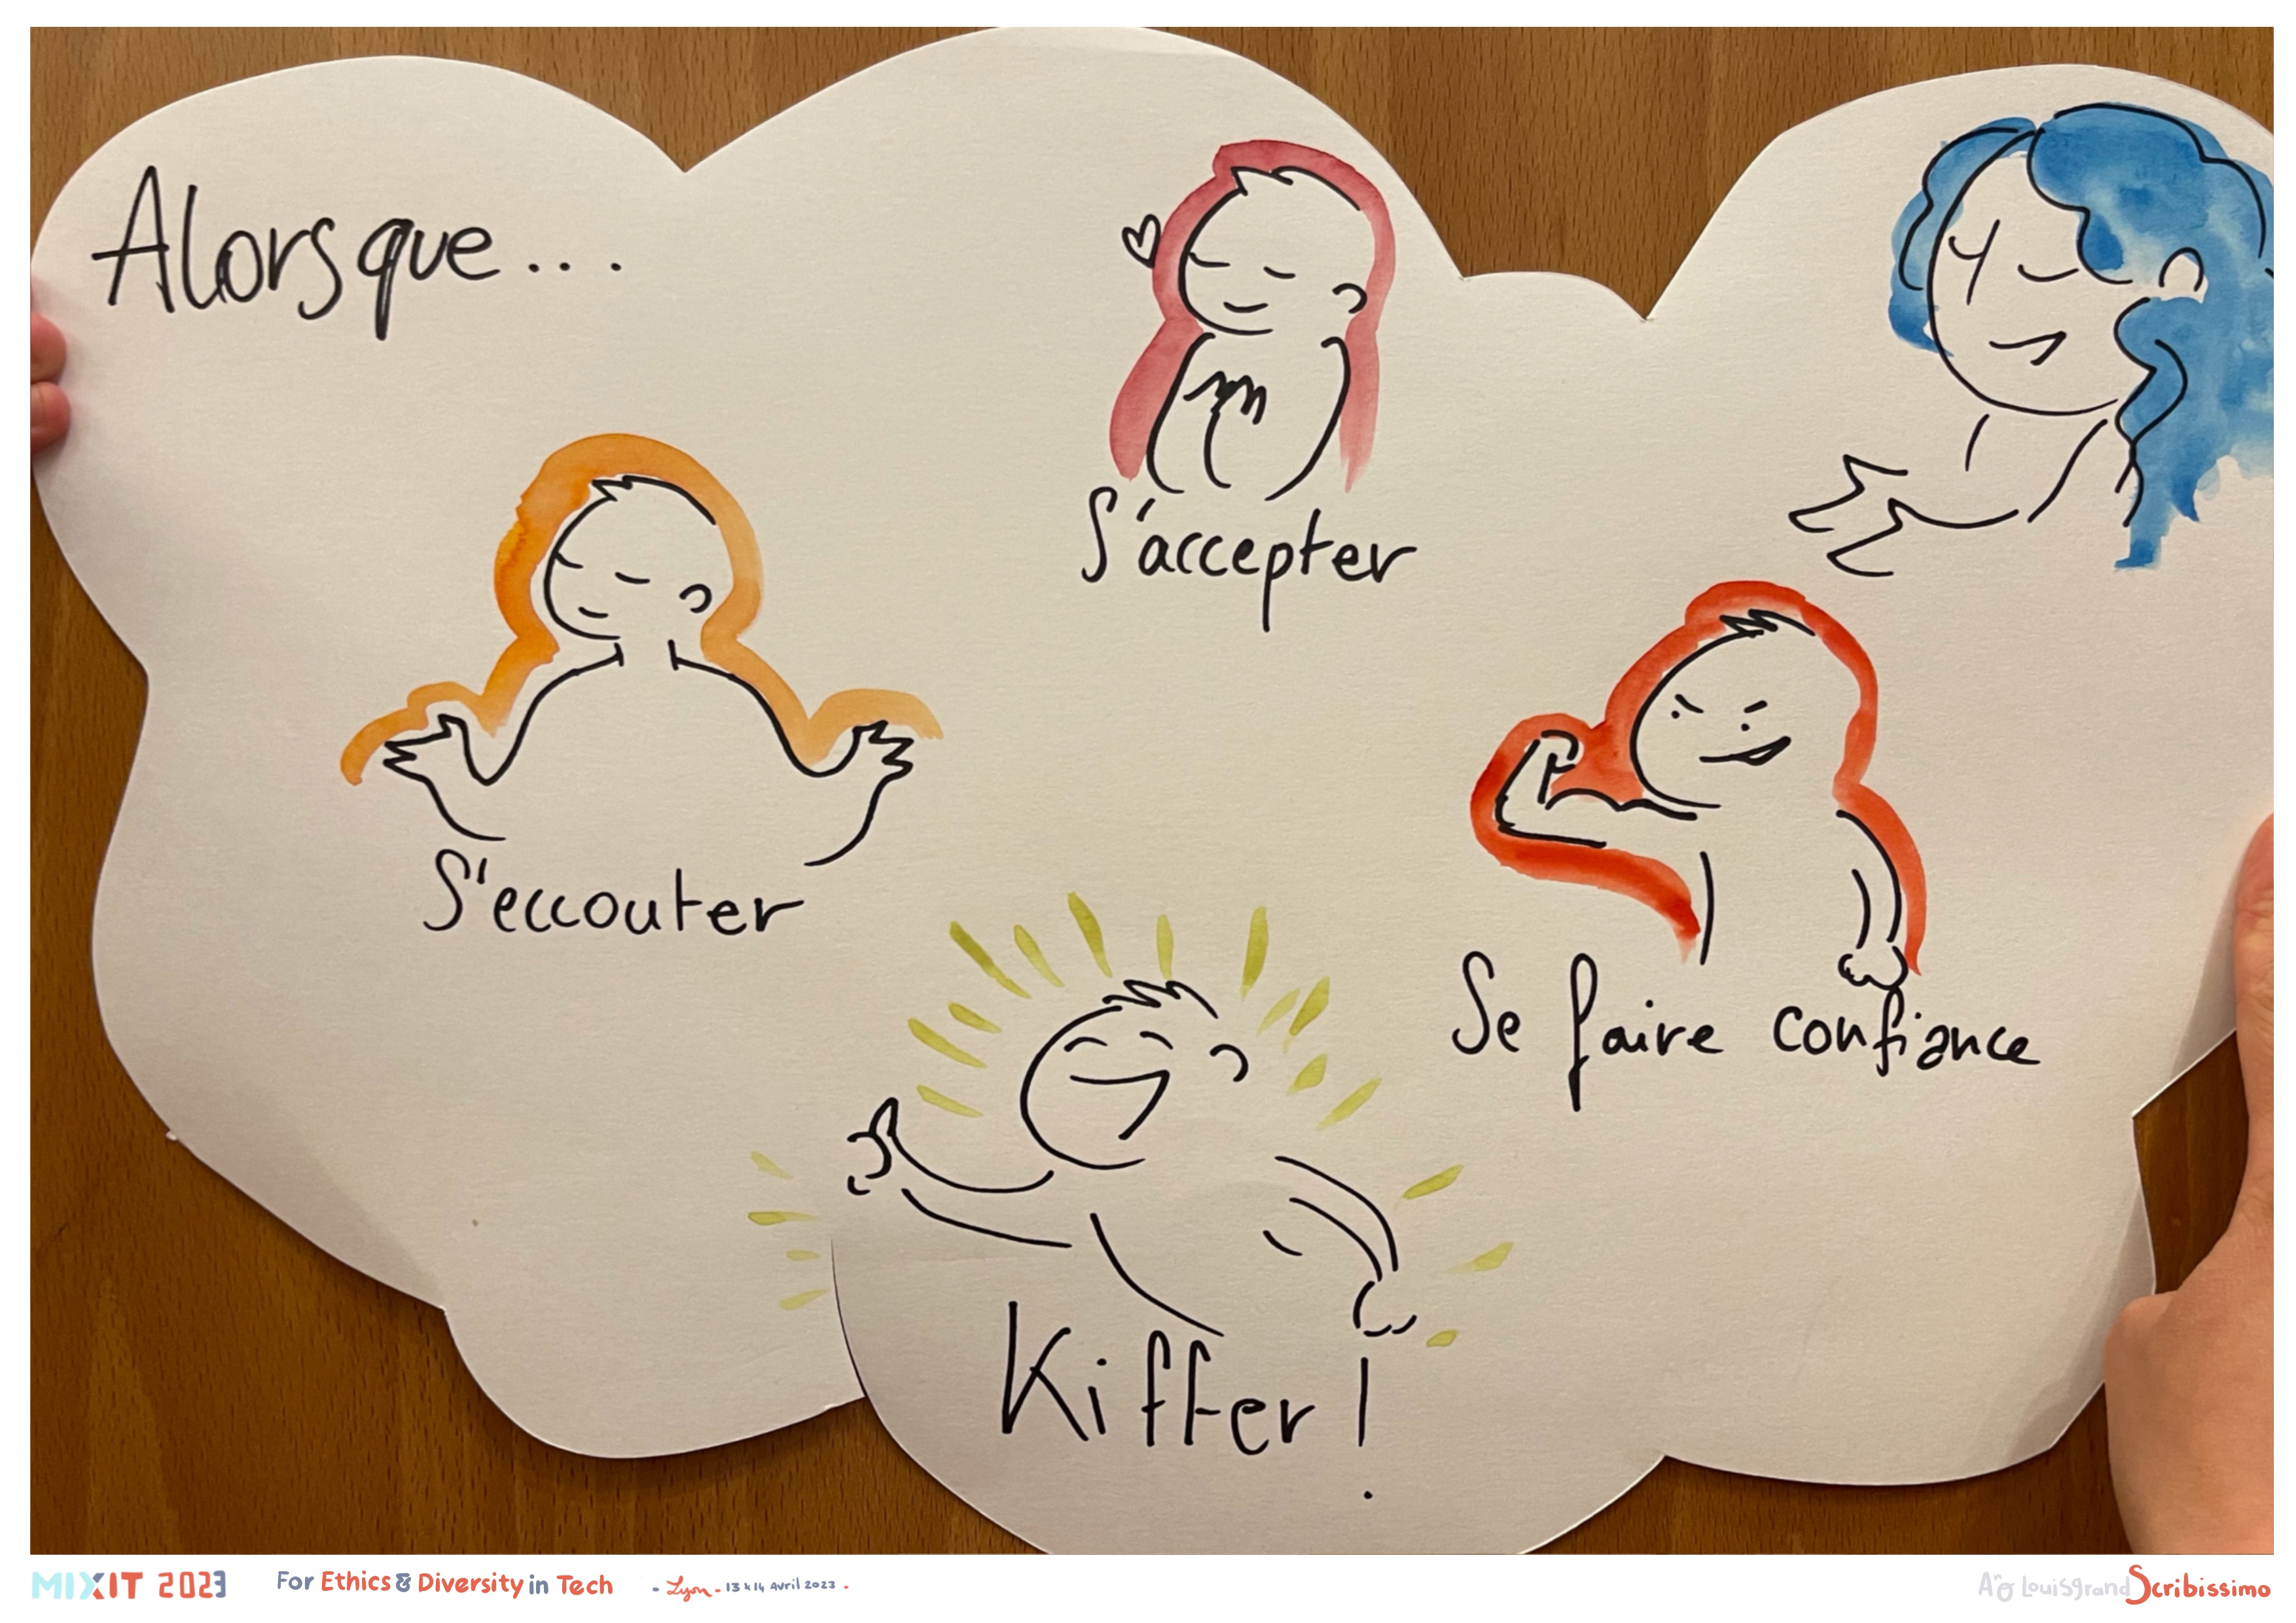 Alors que...
S'accepter
S'eccouter
Se faire confiance
Kiffer !
MIXIT 2023 For Ethics & Diversity in Tech - Lyon - 13 & 14 Avril 2023 -
Louisgrand Scribissimo